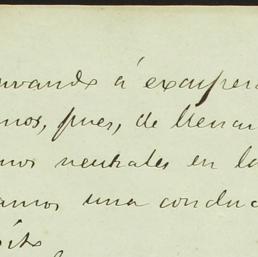 á exasper
nos, pues, de llenar
nos neutrales en la
amos una conduc